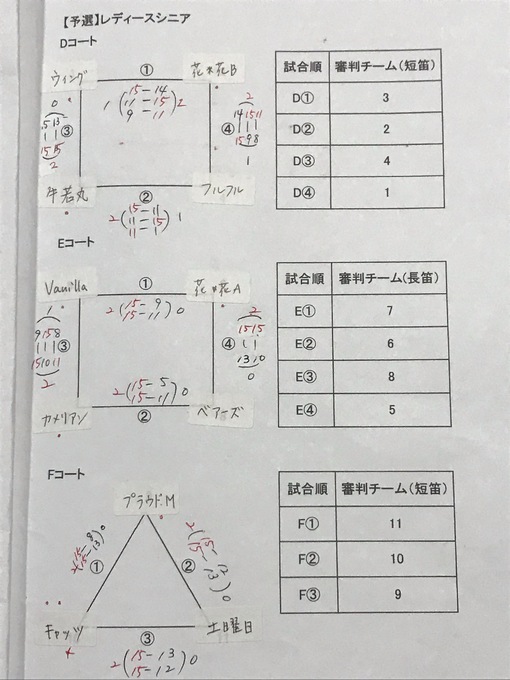 【予選】レディースシニア
Dコート
ウィング ① 花*花B
15-14
1 ( 11-15 ) 2
9-11
0
5 13
③
15 15
2
2
14 15 11
④
15 9 8
1
牛若丸 ② フルフル
15-11
2 ( 11-15 ) 1
11-1
試合順 審判チーム(短笛)
D① 3
D② 2
D③ 4
D④ 1
Eコート
Vanilla ① 花*花A
2 ( 15-9 ) 0
15-11
1
9 15 8
③
15 10 11
2
2
15 15
④
13 10
0
2 ( 15-5 ) 0
15-11
カメリアン ② ベアーズ
試合順 審判チーム(長笛)
E① 7
E② 6
E③ 8
E④ 5
Fコート
プラウドM
2 ( 15-8 ) 0
15-13
①
2 ( 15-12 ) 0
15-13
②
キャッツ ③ 土曜日
2 ( 15-13 ) 0
15-12
試合順 審判チーム(短笛)
F① 11
F② 10
F③ 9